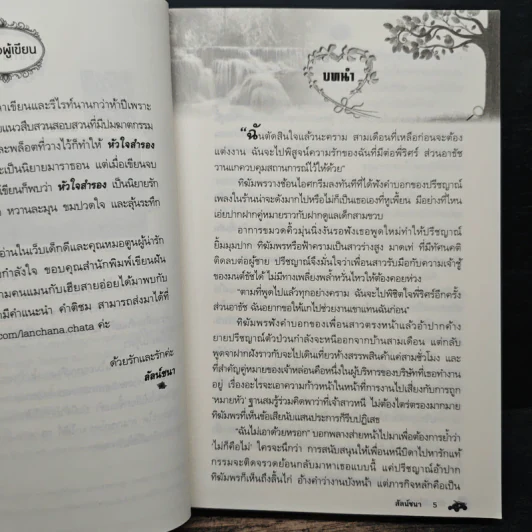 ผู้เขียน
าเขียนและรีไรท์นานกว่าห้าปีเพราะ
แนวสืบสวนสอบสวนที่มีปมฆาตกรรม
ละพล็อตที่วางไว้ก็ทำให้ หัวใจสำรอง
ะเป็นนิยายมาราธอน แต่เมื่อเขียนจบ
ขียนก็พบว่า หัวใจสำรอง เป็นนิยายรัก
หวานละมุน ขมปวดใจ และลุ้นระทึก
อ่านในเว็บเด็กดีและคุณหมอตูนผู้น่ารัก
กำลังใจ ขอบคุณสำนักพิมพ์เขียนฝัน
ามคนแมนกับเฮียสายอ่อยได้มาพบกับ
ามีคำแนะนำ คำติชม สามารถส่งมาได้ที่
com/lanchana.chata ค่ะ
ด้วยรักและรักค่ะ
ลัลน์ชนา
บทนำ
“ฉันตัดสินใจแล้วนะคราม สามเดือนที่เหลือก่อนจะต้อง
แต่งงาน ฉันจะไปพิสูจน์ความรักของฉันที่มีต่อพี่ริศร์ ส่วนอาชัช
วานแกควบคุมสถานการณ์ไว้ให้ด้วย”
ทิฆัมพรวางช้อนไอศกรีมลงทันทีที่ได้ฟังคำบอกของปรีชญาณ์
เพลงในร้านน่าจะดังมากไปหรือไม่ก็เป็นเธอเองที่หูเพี้ยน มีอย่างที่ไหน
เอ่ยปากฝากคู่หมายราวกับฝากดูแลเด็กสามขวบ
อาการขมวดคิ้วมุ่นนิ่งงันรอฟังเธอพูดใหม่ทำให้ปรีชญาณ์
ยิ้มมุมปาก ทิฆัมพรหรือฟ้าครามเป็นสาวร่างสูง มาดเท่ ที่มีทัศนคติ
ติดลบต่อผู้ชาย ปรีชญาณ์จึงมั่นใจว่าเพื่อนสาวรับมือกับความเจ้าชู้
ของมนต์ชัชได้ ไม่มีทางเพลี่ยงพล้ำหวั่นไหวให้ต้องคอยห่วง
“ตามที่พูดไปแล้วทุกอย่างคราม ฉันจะไปพิชิตใจพี่ริศร์อีกครั้ง
ส่วนอาชัช ฉันอยากขอให้แกไปช่วยงานเขาแทนฉันก่อน”
ทิฆัมพรฟังคำบอกของเพื่อนสาวตรงหน้าแล้วอ้าปากค้าง
ยายปรีชญาณ์ตัวป่วนกำลังจะหนีออกจากบ้านสามเดือน แต่กลับ
พูดจาฝากฝังราวกับจะไปเดินเที่ยวห้างสรรพสินค้าแค่สามชั่วโมง และ
ที่สำคัญคู่หมายของเจ้าหล่อนคือหนึ่งในผู้บริหารของบริษัทที่เธอทำงาน
อยู่ เรื่องอะไรจะเอาความก้าวหน้าในหน้าที่การงานไปเสี่ยงกับการถูก
‘หมายหัว’ ฐานสมรู้ร่วมคิดพาว่าที่เจ้าสาวหนี ไม่ต้องไตร่ตรองมากมาย
ทิฆัมพรที่เห็นข้อเสียนับแสนประการก็รีบปฏิเสธ
“ฉันไม่เอาด้วยหรอก” บอกพลางส่ายหน้าไปมาเพื่อต้องการย้ำว่า
‘ไม่ก็คือไม่’ ใครจะนึกว่า การสนับสนุนให้เพื่อนหนีบิดาไปหารักแท้
กรรมจะติดจรวดย้อนกลับมาหาเธอแบบนี้ แค่ปรีชญาณ์อ้าปาก
ทิฆัมพรก็เห็นถึงลิ้นไก่ อ้างคำว่างานบังหน้า แต่ภารกิจหลักคือเป็น
ลัลน์ชนา 5